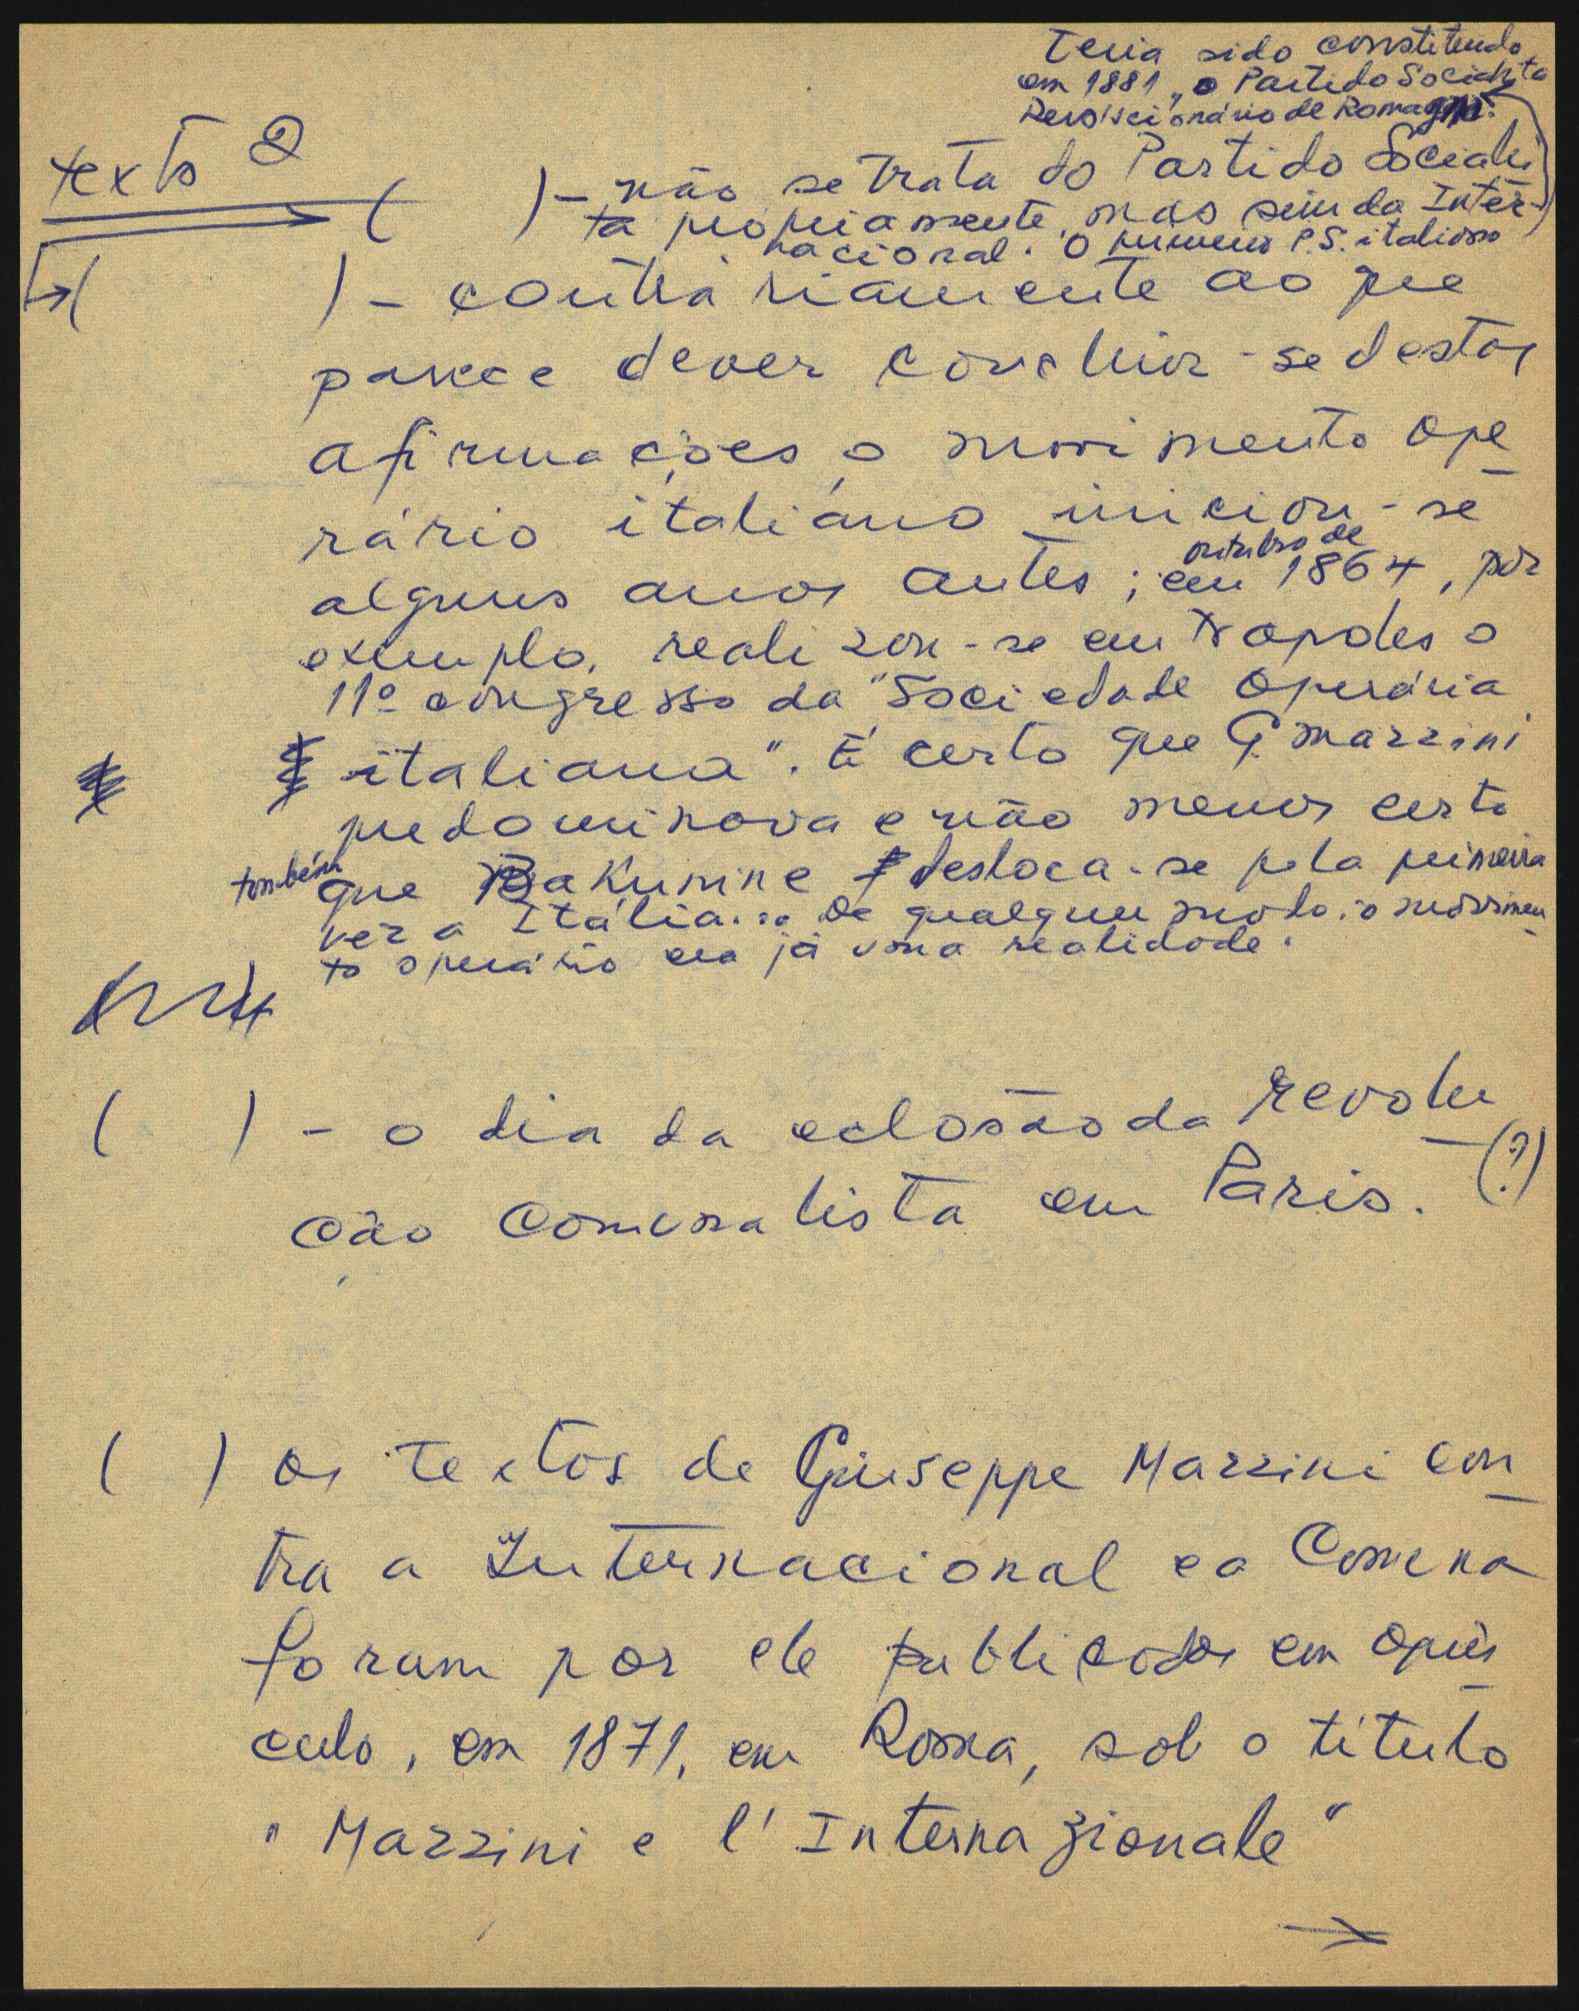 Teria sido constituido
em 1881, o Partido Socialista
Revolucionário de Romagna.
texto 2
( ) - não se trata do Partido Sociali
ta propriamente, mas sim da Inter-
nacional. O primeiro P.S. italiano
( ) - contràriamente ao que
parece dever concluir-se destas
afirmações, o movimento ope
rário italiano iniciou-se
alguns anos antes; em outubro de 1864, por
exemplo, realizou-se em Napoles o
11º congresso da "Sociedade Operária
italiana". É certo que G. Mazzini
predominava e não menos certo
também que Bakunine desloca-se pela primeira
vez a Itália... De qualquer modo, o movimen
to operário era já uma realidade.
( ) - o dia da eclosão da revolu
ção comunalista em Paris. (?)
( ) Os textos de Giuseppe Mazzini con
tra a Internacional e a Comuna
foram por ele publicados em opús
culo, em 1871, em Roma, sob o título
"Mazzini e l'Internazionale"